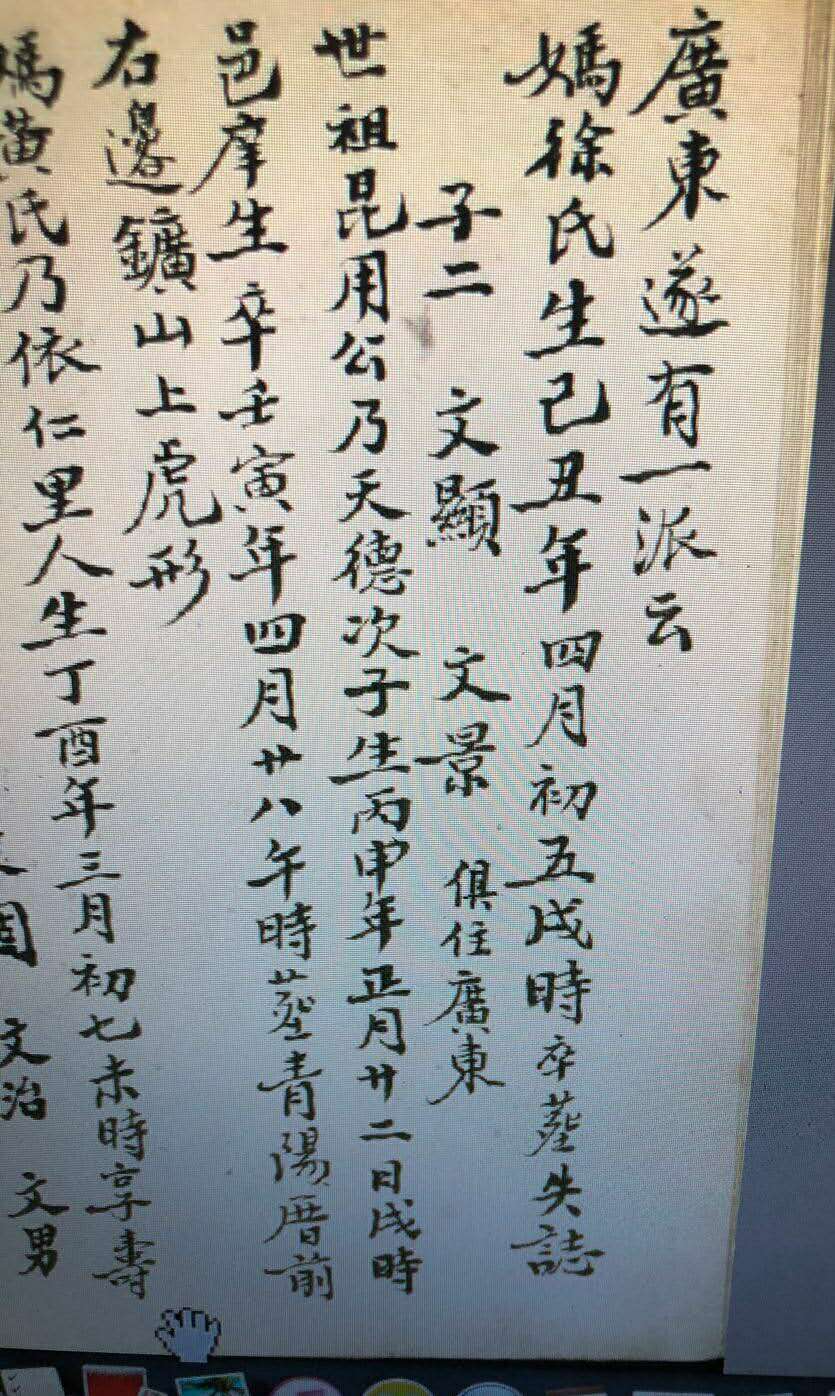 廣東遂有一派云
媽徐氏生己丑年四月初五戌時卒塟失誌
子二 文顯 文景 俱住廣東
世祖昆用公乃天德次子生丙申年正月廿二日戌時
邑庠生卒壬寅年四月廿八午時塟青陽厝前
右邊鑛山上虎形
媽黃氏乃依仁里人生丁酉年三月初七未時享壽
固 文治 文男